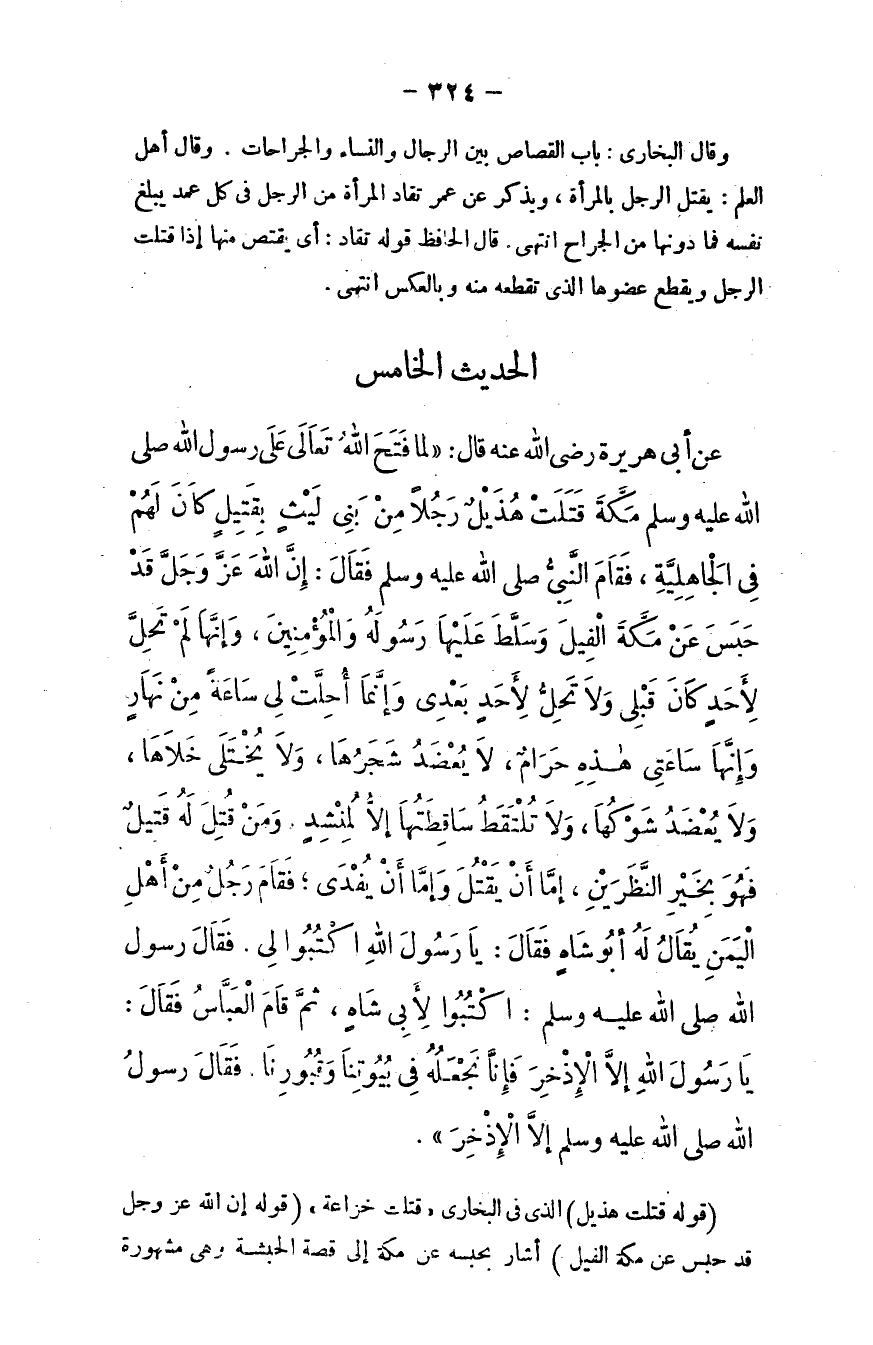 – ٣٢٤ –
وقال البخارى : باب القصاص بين الرجال والنساء والجراحات . وقال أهل
العلم : يقتل الرجل بالمرأة ، ويذكر عن عمر تقاد المرأة من الرجل فى كل عمد يبلغ
نفسه فما دونها من الجراح انتهى . قال الحافظ قوله تقاد : أى يقتص منها إذا قتلت
الرجل ويقطع عضوها الذى تقطعه منه وبالعكس انتهى .
الحديث الخامس
عن أبى هريرة رضى الله عنه قال : «لما فَتَحَ اللهُ تَعَالَى عَلَى رسول الله صلى
الله عليه وسلم مَكَّةَ قَتَلَتْ هُذَيْلٌ رَجُلاً مِنْ بَنِى لَيْثٍ بِقَتِيلٍ كَانَ لَهُمْ
فِى الْجَاهِلِيَّةِ ، فَقَامَ النَّبِيُّ صلى الله عليه وسلم فَقَالَ : إِنَّ اللهَ عَزَّ وَجَلَّ قَدْ
حَبَسَ عَنْ مَكَّةَ الْفِيلَ وَسَلَّطَ عَلَيْهَا رَسُولَهُ وَالْمُؤْمِنِينَ ، وَإِنَّهَا لَمْ تَحِلَّ
لِأَحَدٍ كَانَ قَبْلِى وَلاَ تَحِلُّ لِأَحَدٍ بَعْدِى وَإِنَّمَا أُحِلَّتْ لِى سَاعَةً مِنْ نَهَارٍ
وَإِنَّهَا سَاعَتِى هٰذِهِ حَرَامٌ ، لاَ يُعْضَدُ شَجَرُهَا ، وَلاَ يُخْتَلَى خَلاَهَا ،
وَلاَ يُعْضَدُ شَوْكُهَا ، وَلاَ تُلْتَقَطُ سَاقِطَتُهَا إِلاَّ لِمُنْشِدٍ . وَمَنْ قُتِلَ لَهُ قَتِيلٌ
فَهُوَ بِخَيْرِ النَّظَرَيْنِ ، إِمَّا أَنْ يَقْتُلَ وَإِمَّا أَنْ يُفْدَى ؛ فَقَامَ رَجُلٌ مِنْ أَهْلِ
الْيَمَنِ يُقَالُ لَهُ أَبُو شَاهٍ فَقَالَ : يَا رَسُولَ اللهِ اكْتُبُوا لِى . فَقَالَ رسول
الله صلى الله عليه وسلم : اكْتُبُوا لِأَبِى شَاهٍ ، ثُمَّ قَامَ الْعَبَّاسُ فَقَالَ :
يَا رَسُولَ اللهِ إِلاَّ الْإِذْخِرَ فَإِنَّا نَجْعَلُهُ فِى بُيُوتِنَا وَقُبُورِنَا . فَقَالَ رسولُ
الله صلى الله عليه وسلم إِلاَّ الْإِذْخِرَ » .
(قوله قتلت هذيل) الذى فى البخارى ، قتلت خزاعة ، (قوله إن الله عز وجل
قد حبس عن مكة الفيل ) أشار بحبسه عن مكة إلى قصة الحبشة وهى مشهورة